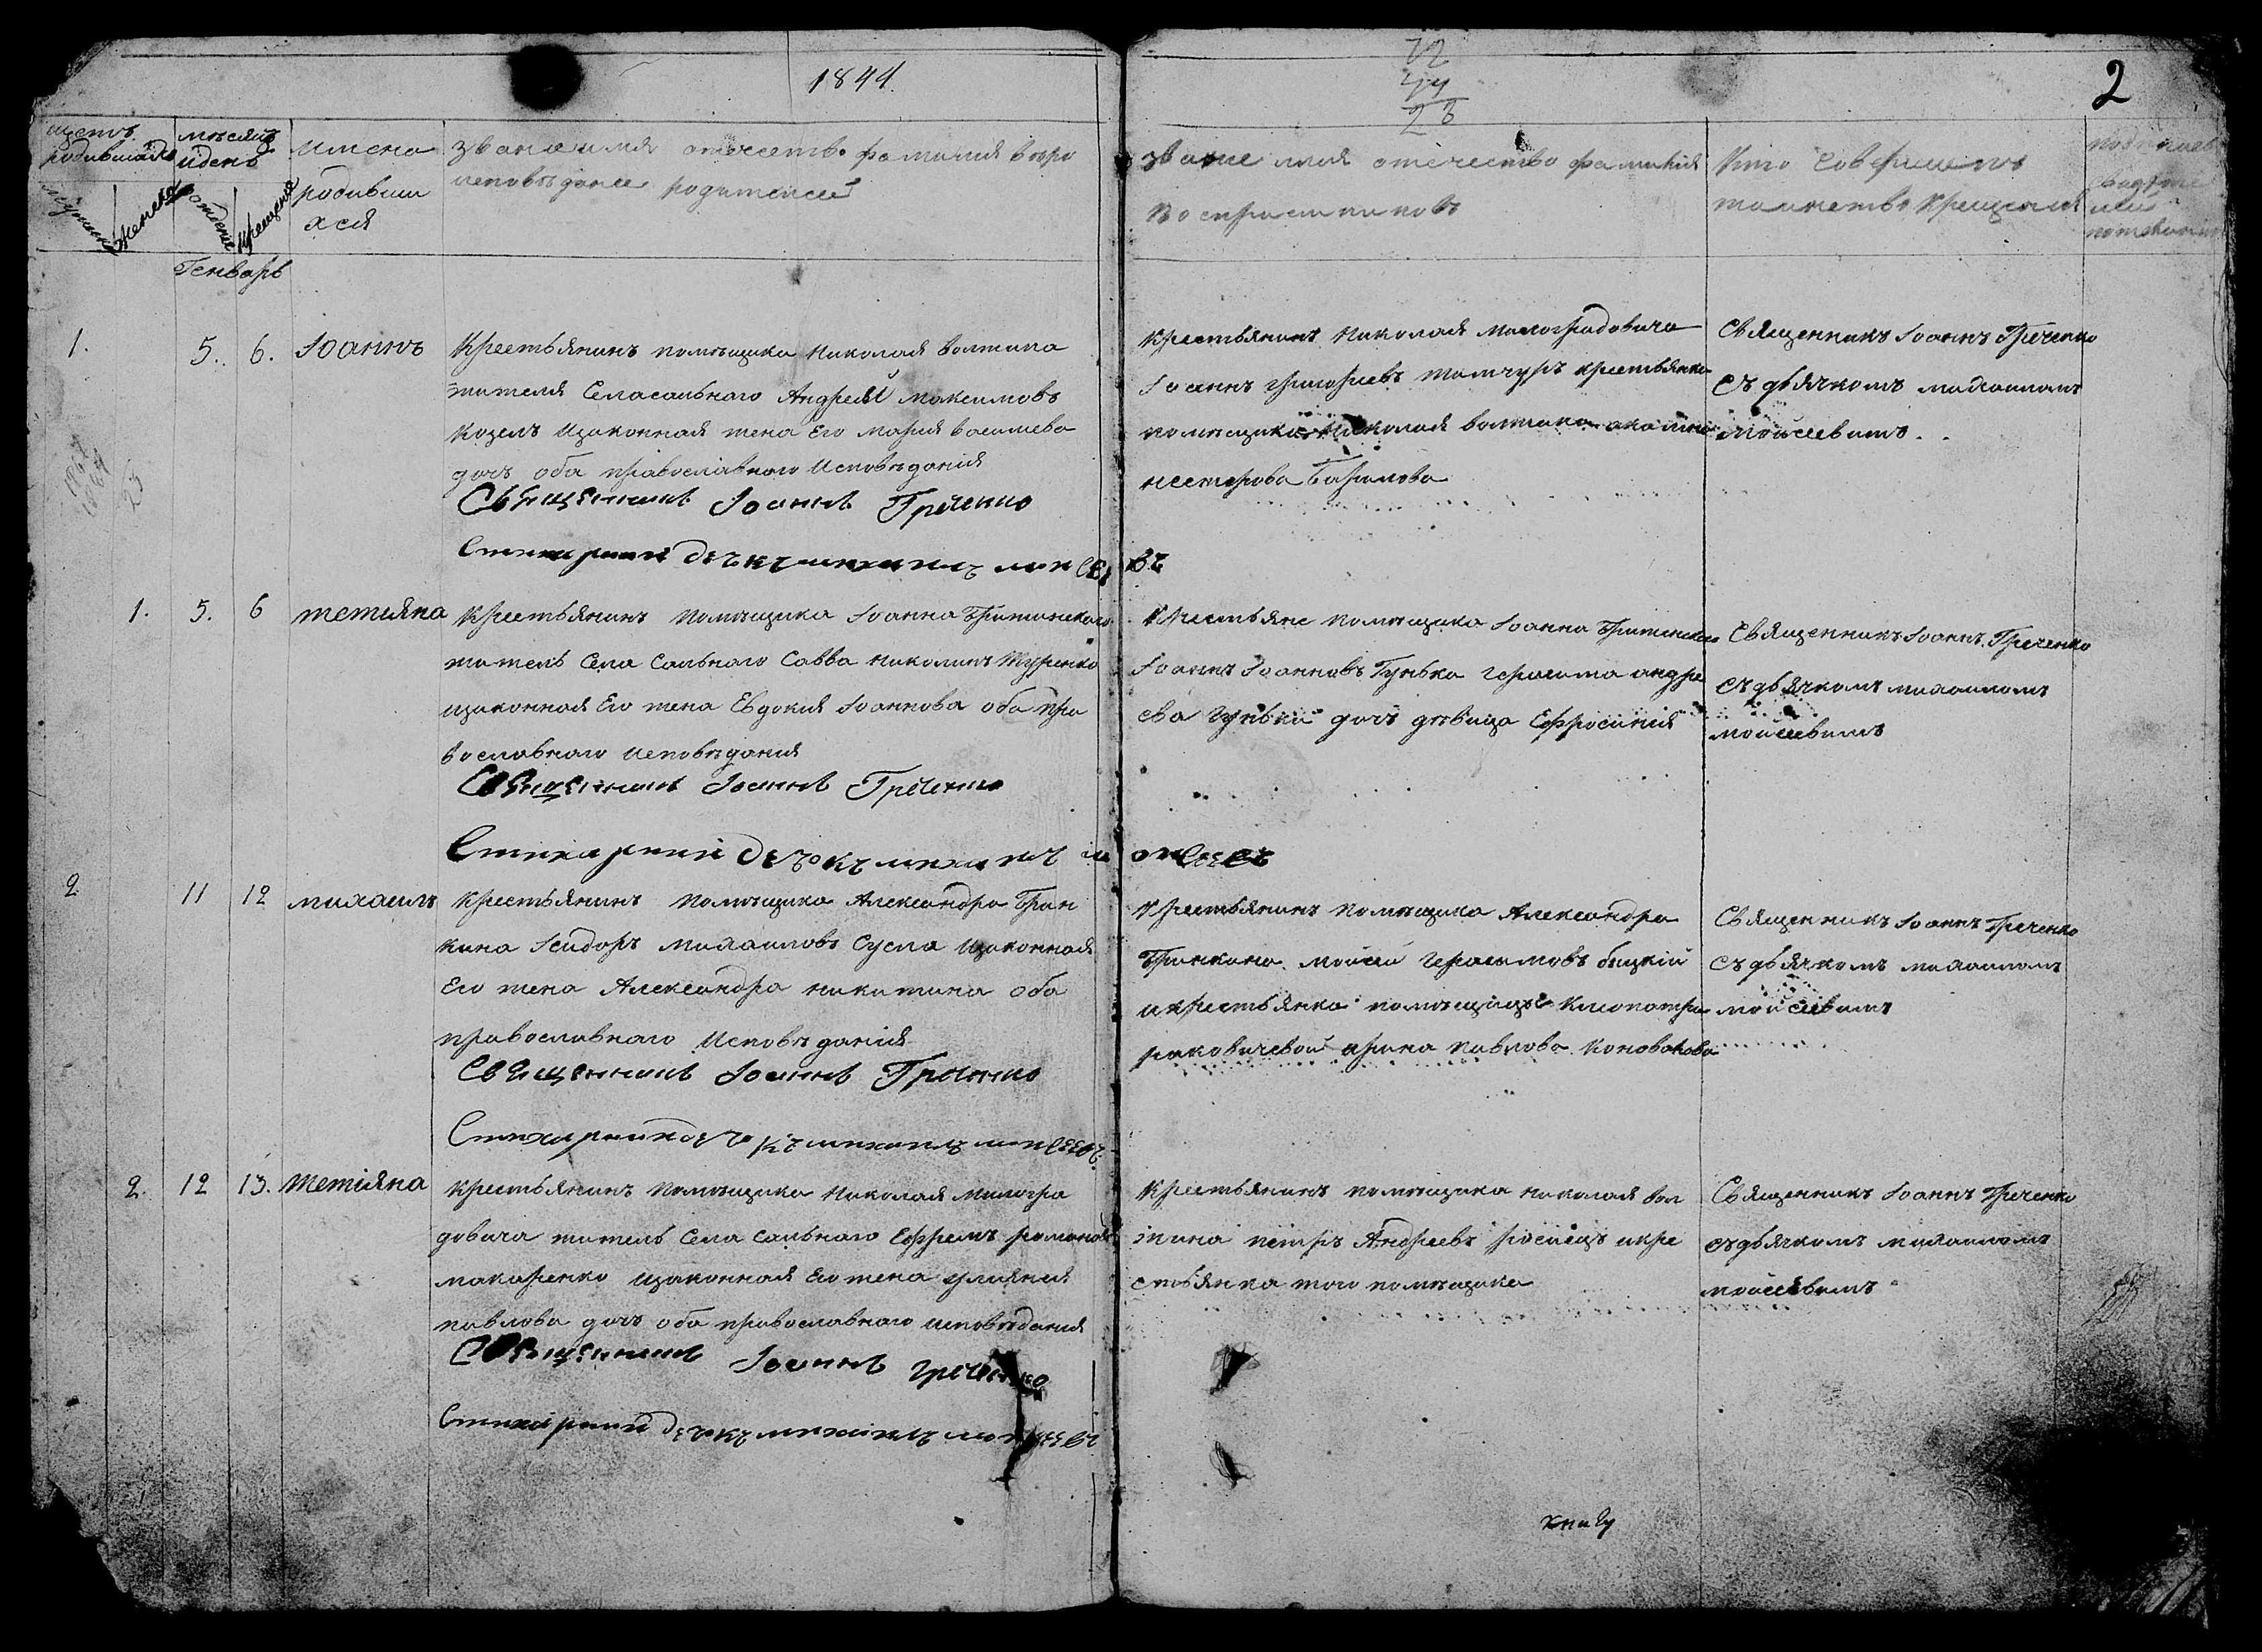 1844.
2
72
44
28
щетъ родившихся
мужеска
женска
мѣсяцъ и день
рожденія
крещенія
имена родившихся
званіе имя отечество фамилия
исповѣданіе родителей
званіе имя отечество фамилия
воспріемниковъ
Кто совершалъ
таинство крещенія
Генварь
1.
5. 6. Іоаннъ
Крестьянинъ помѣщика Николая волжина
жителя Села сальнаго Андрей максимовъ
Козелъ изаконная жена Его мария василиева
дочъ оба православнаго Исповѣданія
Священникъ Іоаннъ Греченко
Стихарний дечокъ михаилъ мойсеевъ
Крестьянинъ Николая милорадовича
Іоаннъ григориевъ крестьянка
помѣщика николая волжина
нестерова
Священникъ Іоаннъ Греченко
съ дьячкомъ михаиломъ
мойсеевимъ.
1. 5. 6 тетияна
Крестьянинъ помѣщика Іоанна
житель Села Сальнаго Савва николинъ
изаконная Его жена Евдокия Іоаннова оба пра
вославнаго исповѣдания
Священникъ Іоаннъ Греченко
Стихарний дечокъ михаилъ мойсеевъ
Крестьяне помѣщика Іоанна
Іоаннъ Іоанновъ Гунька герасима андре
ева гуньки дочъ дѣвица Ефросиния
Священникъ Іоаннъ Греченко
съ дьячкомъ михаиломъ
мойсеевимъ
2
11 12 михаилъ
Крестьянинъ помѣщика Александра Грин
кина Ісидоръ михаиловъ Сусла изаконная
Его жена Александра никитина оба
православнаго Исповѣданія
Священникъ Іоаннъ Греченко
Стихарний дечокъ михаилъ мойсеевъ
Крестьянинъ помѣщика Александра
Гринкина мойсей герасимовъ
и крестьянка помѣщицы Клеопатри
раковичевой ирина павлова
Священникъ Іоаннъ Греченко
съ дьячкомъ михаиломъ
мойсеевимъ
2. 12 13. Тетіяна
Крестьянинъ помѣщика николая милора
довича житель Села Сальнаго Ефремъ романовъ
макаренко изаконная Его жена улияния
павлова дочъ оба православнаго исповѣдания
Священникъ Іоаннъ Греченко
Стихарний дечокъ михаилъ мойсеевъ
Крестьянинъ помѣщика николая вол
жина петръ Андреевъ и кре
стьянка того помѣщика
Священникъ Іоаннъ Греченко
съ дьячкомъ михаиломъ
мойсеевимъ
книгу